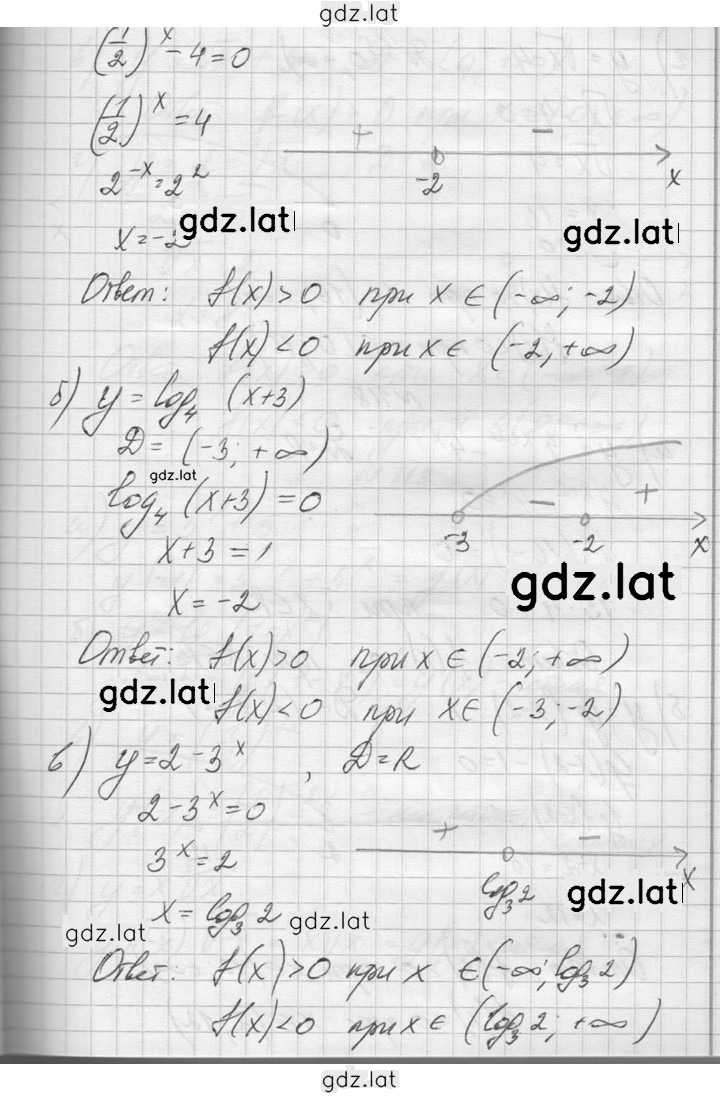 gdz.lat
(1/2)^x - 4 = 0
(1/2)^x = 4
+ −
2^-x = 2^2
-2 x
gdz.lat gdz.lat
x = -2
Ответ: f(x) > 0 при x ∈ (-∞; -2)
f(x) < 0 при x ∈ (-2; +∞)
б) y = log₄ (x+3)
D = (-3; +∞)
gdz.lat
log₄ (x+3) = 0
− +
-3 -2 x
x + 3 = 1
gdz.lat
x = -2
Ответ: f(x) > 0 при x ∈ (-2; +∞)
gdz.lat
f(x) < 0 при x ∈ (-3; -2)
в) y = 2 - 3^x, D = R
2 - 3^x = 0
+ −
3^x = 2
log₃2 x
gdz.lat
x = log₃ 2
gdz.lat gdz.lat
Ответ: f(x) > 0 при x ∈ (-∞; log₃2)
f(x) < 0 при x ∈ (log₃2; +∞)
gdz.lat